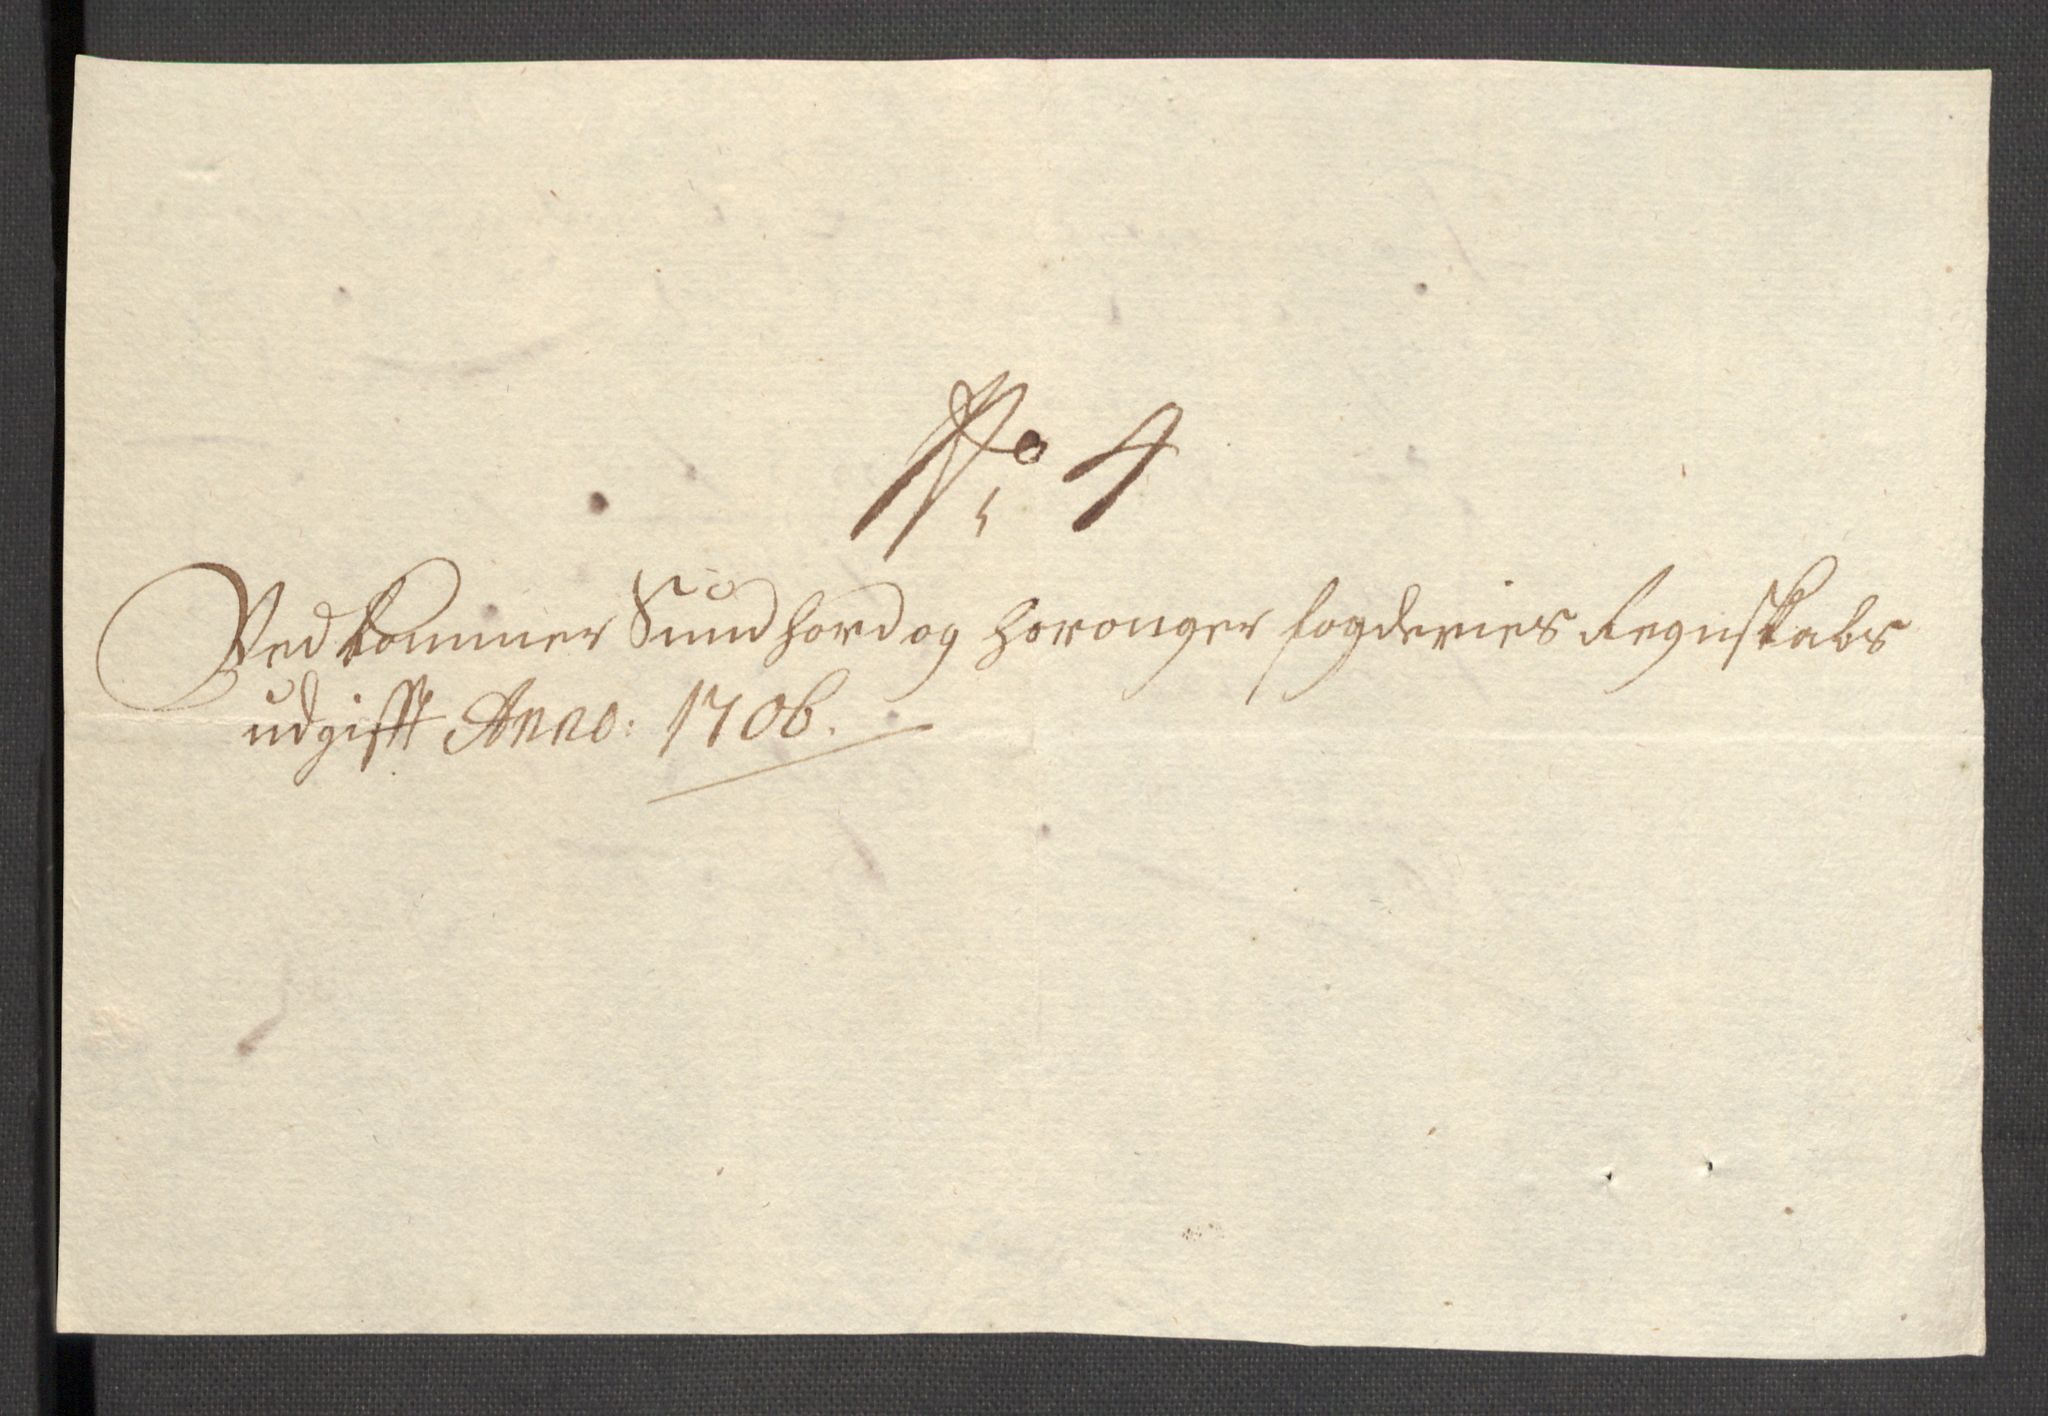 No 4
Vedkommer Sundhord og Horanger fogderies Regnskabs
udgifft Anno: 1706.